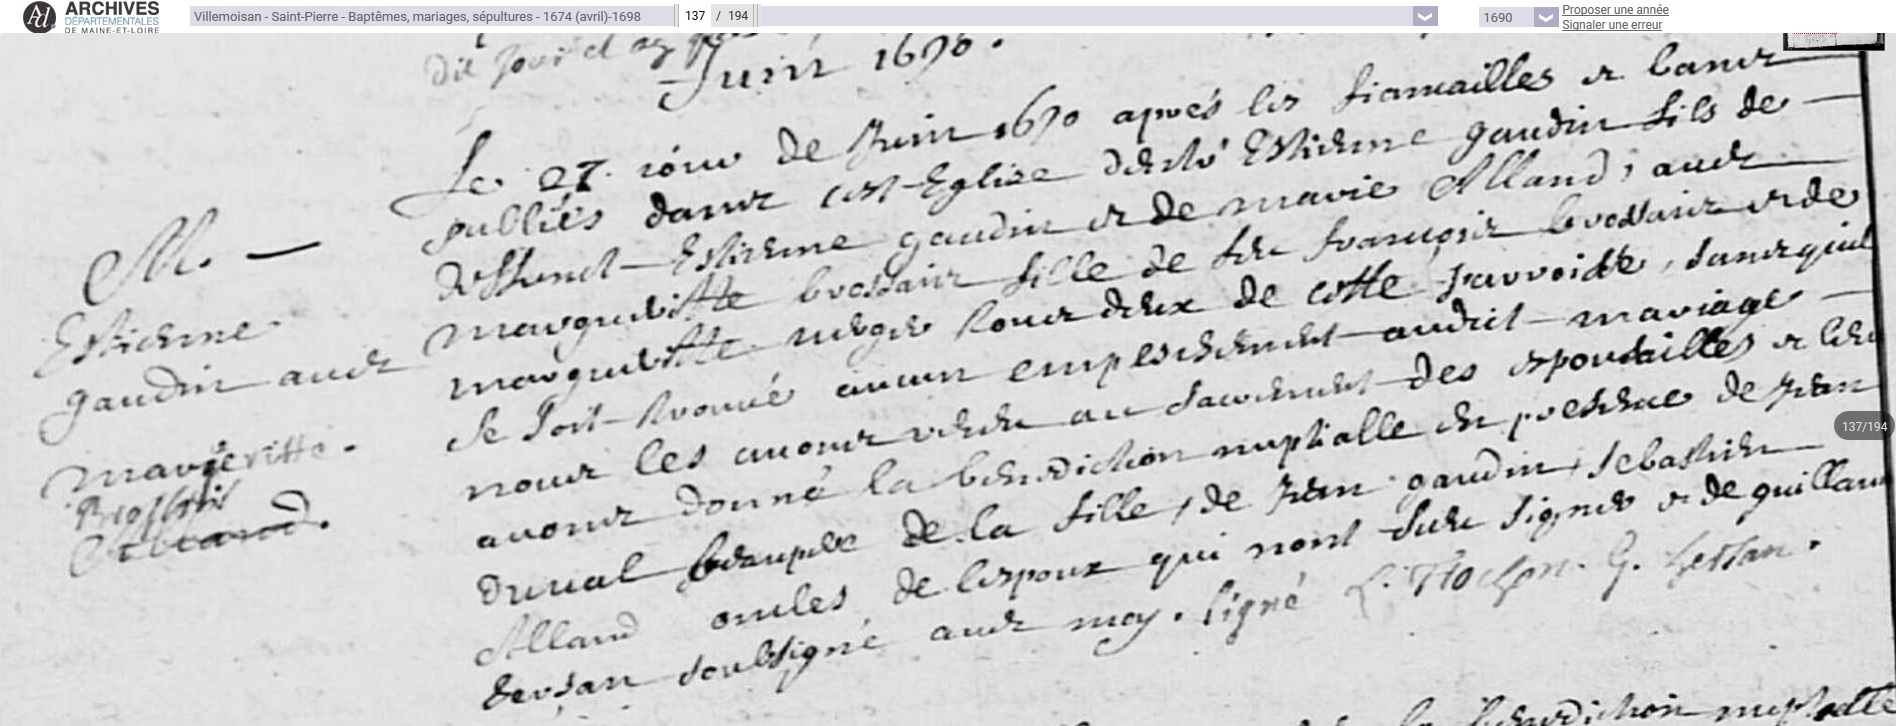 ARCHIVES
DÉPARTEMENTALES
DE MAINE-ET-LOIRE
Villemoisan - Saint-Pierre - Baptêmes, mariages, sépultures - 1674 (avril)-1698
137 / 194
1690
Proposer une année
Signaler une erreur
137/194
dit jour et
Juin 1690.
Le 27. jour de Juin 1690 apres les fiancailles et bancz
publiés dancz cest Eglise d'Estienne gaudin fils de
deffunct Estienne gaudin et de marie Alland, avec
margueritte brossais fille de feu françois brossais et de
margueritte tous deux de cette parroisse, sans quil
se soit trouvé aucun empeschement audict mariage
nous les avons au sacrement des epousailles et leur
avons donné la benediction nuptialle en presence de Jean
duval beaupere de la fille, de Jean gaudin, sebastien
Alland oncles de lespoux qui nont sceu signer et de guillaume
gersan soubsigné avec moy. signé G. Gersan.
M.
Estienne
gaudin avec
margueritte.
Brossais
Alland.
la benediction nuptialle